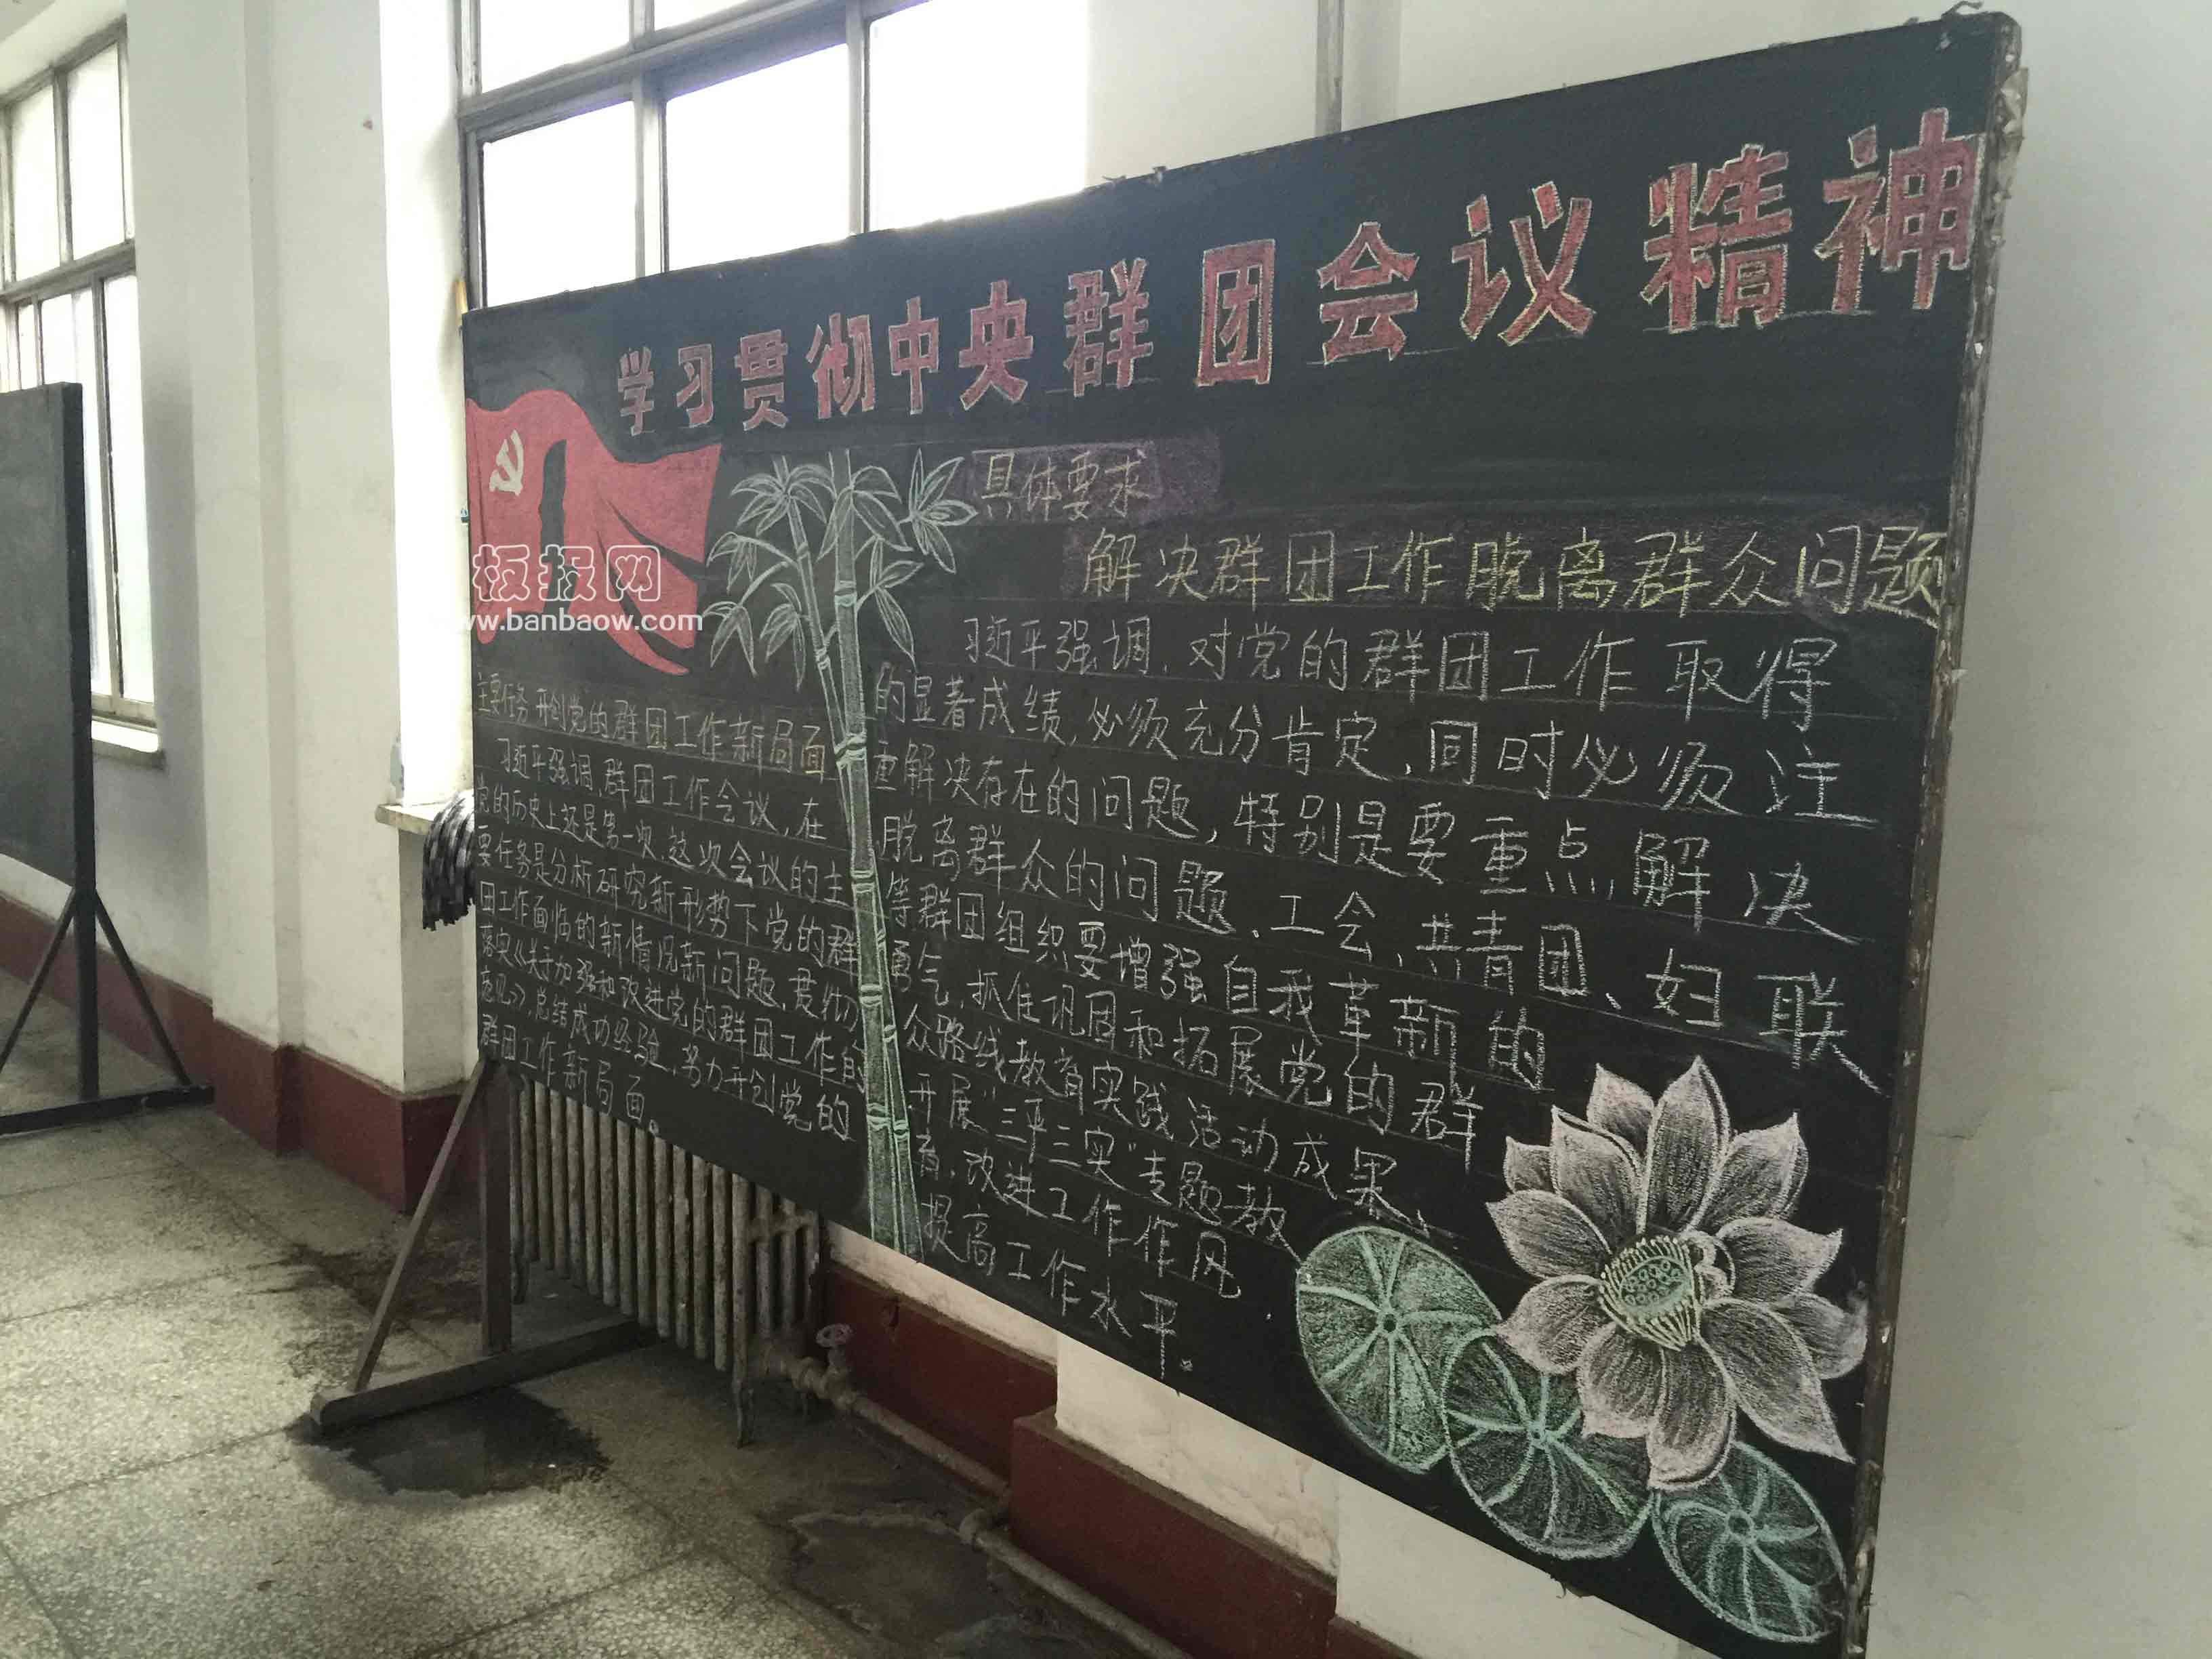 学习贯彻中央群团会议精神
板报网
www.banbaow.com
主要任务 开创党的群团工作新局面
习近平强调,群团工作会议,在
党的历史上还是第一次,这次会议的主
要任务是分析研究新形势下党的群
团工作面临的新情况新问题,贯彻
落实《关于加强和改进党的群团工作的
意见》,总结成功经验,努力开创党的
群团工作新局面。
具体要求
解决群团工作脱离群众问题
习近平强调,对党的群团工作取得
的显著成绩,必须充分肯定,同时必须注
重解决存在的问题,特别是要重点解决
脱离群众的问题、工会、共青团、妇联
等群团组织要增强自我革新的
勇气,抓住巩固和拓展党的群
众路线教育实践活动成果、
开展"三严三实"专题教
育,改进工作作风
提高工作水平。